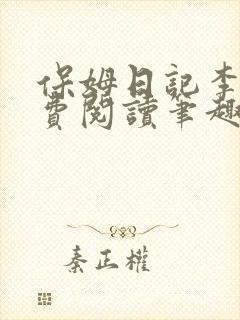 保姆日記李
費閱讀筆趣
秦正權